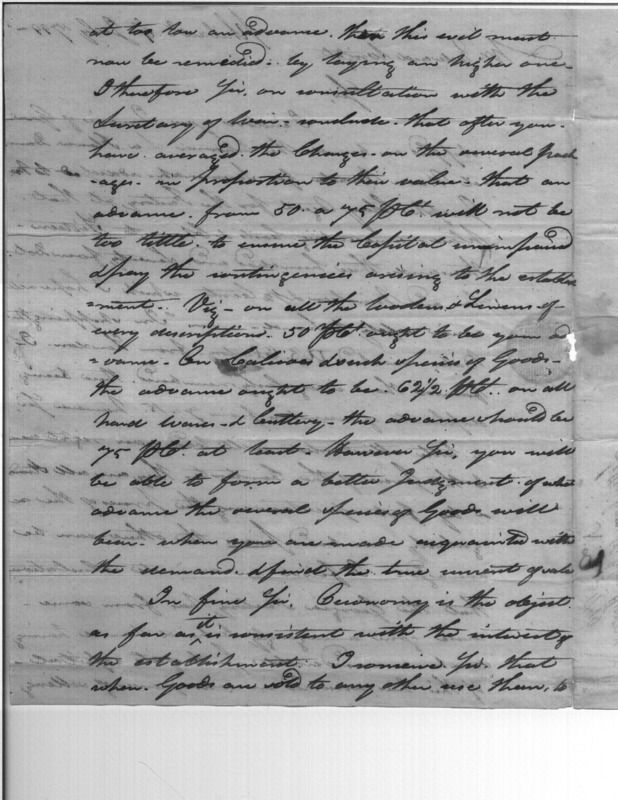 at too low an advance. then this evil must
now be remedied - by laying an higher one
I therefore Sir, on consultation with the
Secretary of War - conclude - that after you
have averaged the Charges - on the several pack
-ages - in proportion to their value - that an
advance - from 50 a 75 PCt. will not be
too little - to ensure the Capital unimpaired
& pay the contingencies arising to the establish
=ment. Viz - on all the Woolens & Linens of
every description. 50 PCt. ought to be your ad
=vance - On Calicoes & such species of Goods -
the advance ought to be 62 1/2 PCt. on all
hard Wares - & Cutlery - the advance should be
75 PCt. at least - However Sir, you will
be able to form a better Judgment of what
advance the several species of Goods will
bear - when you are made acquainted with
the demand - & find the true current of sale
In fine Sir, Oeconomy is the object
as far as it is consistent with the interest of
the establishment. I conceive Sir that
when Goods are sold to any other use them, to
89